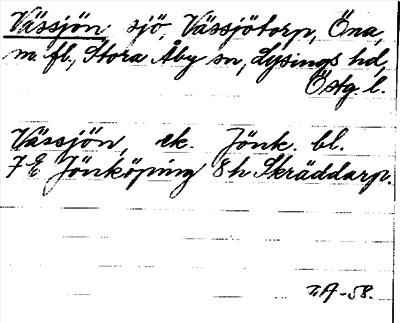 Vässjön sjö, Vässjötorp, Öna,
m. fl., Stora Åby sn, Lysings hd,
Östg. l.
Vässjön, ek. Jönk. bl.
7 E Jönköping 8 h Skräddarp.